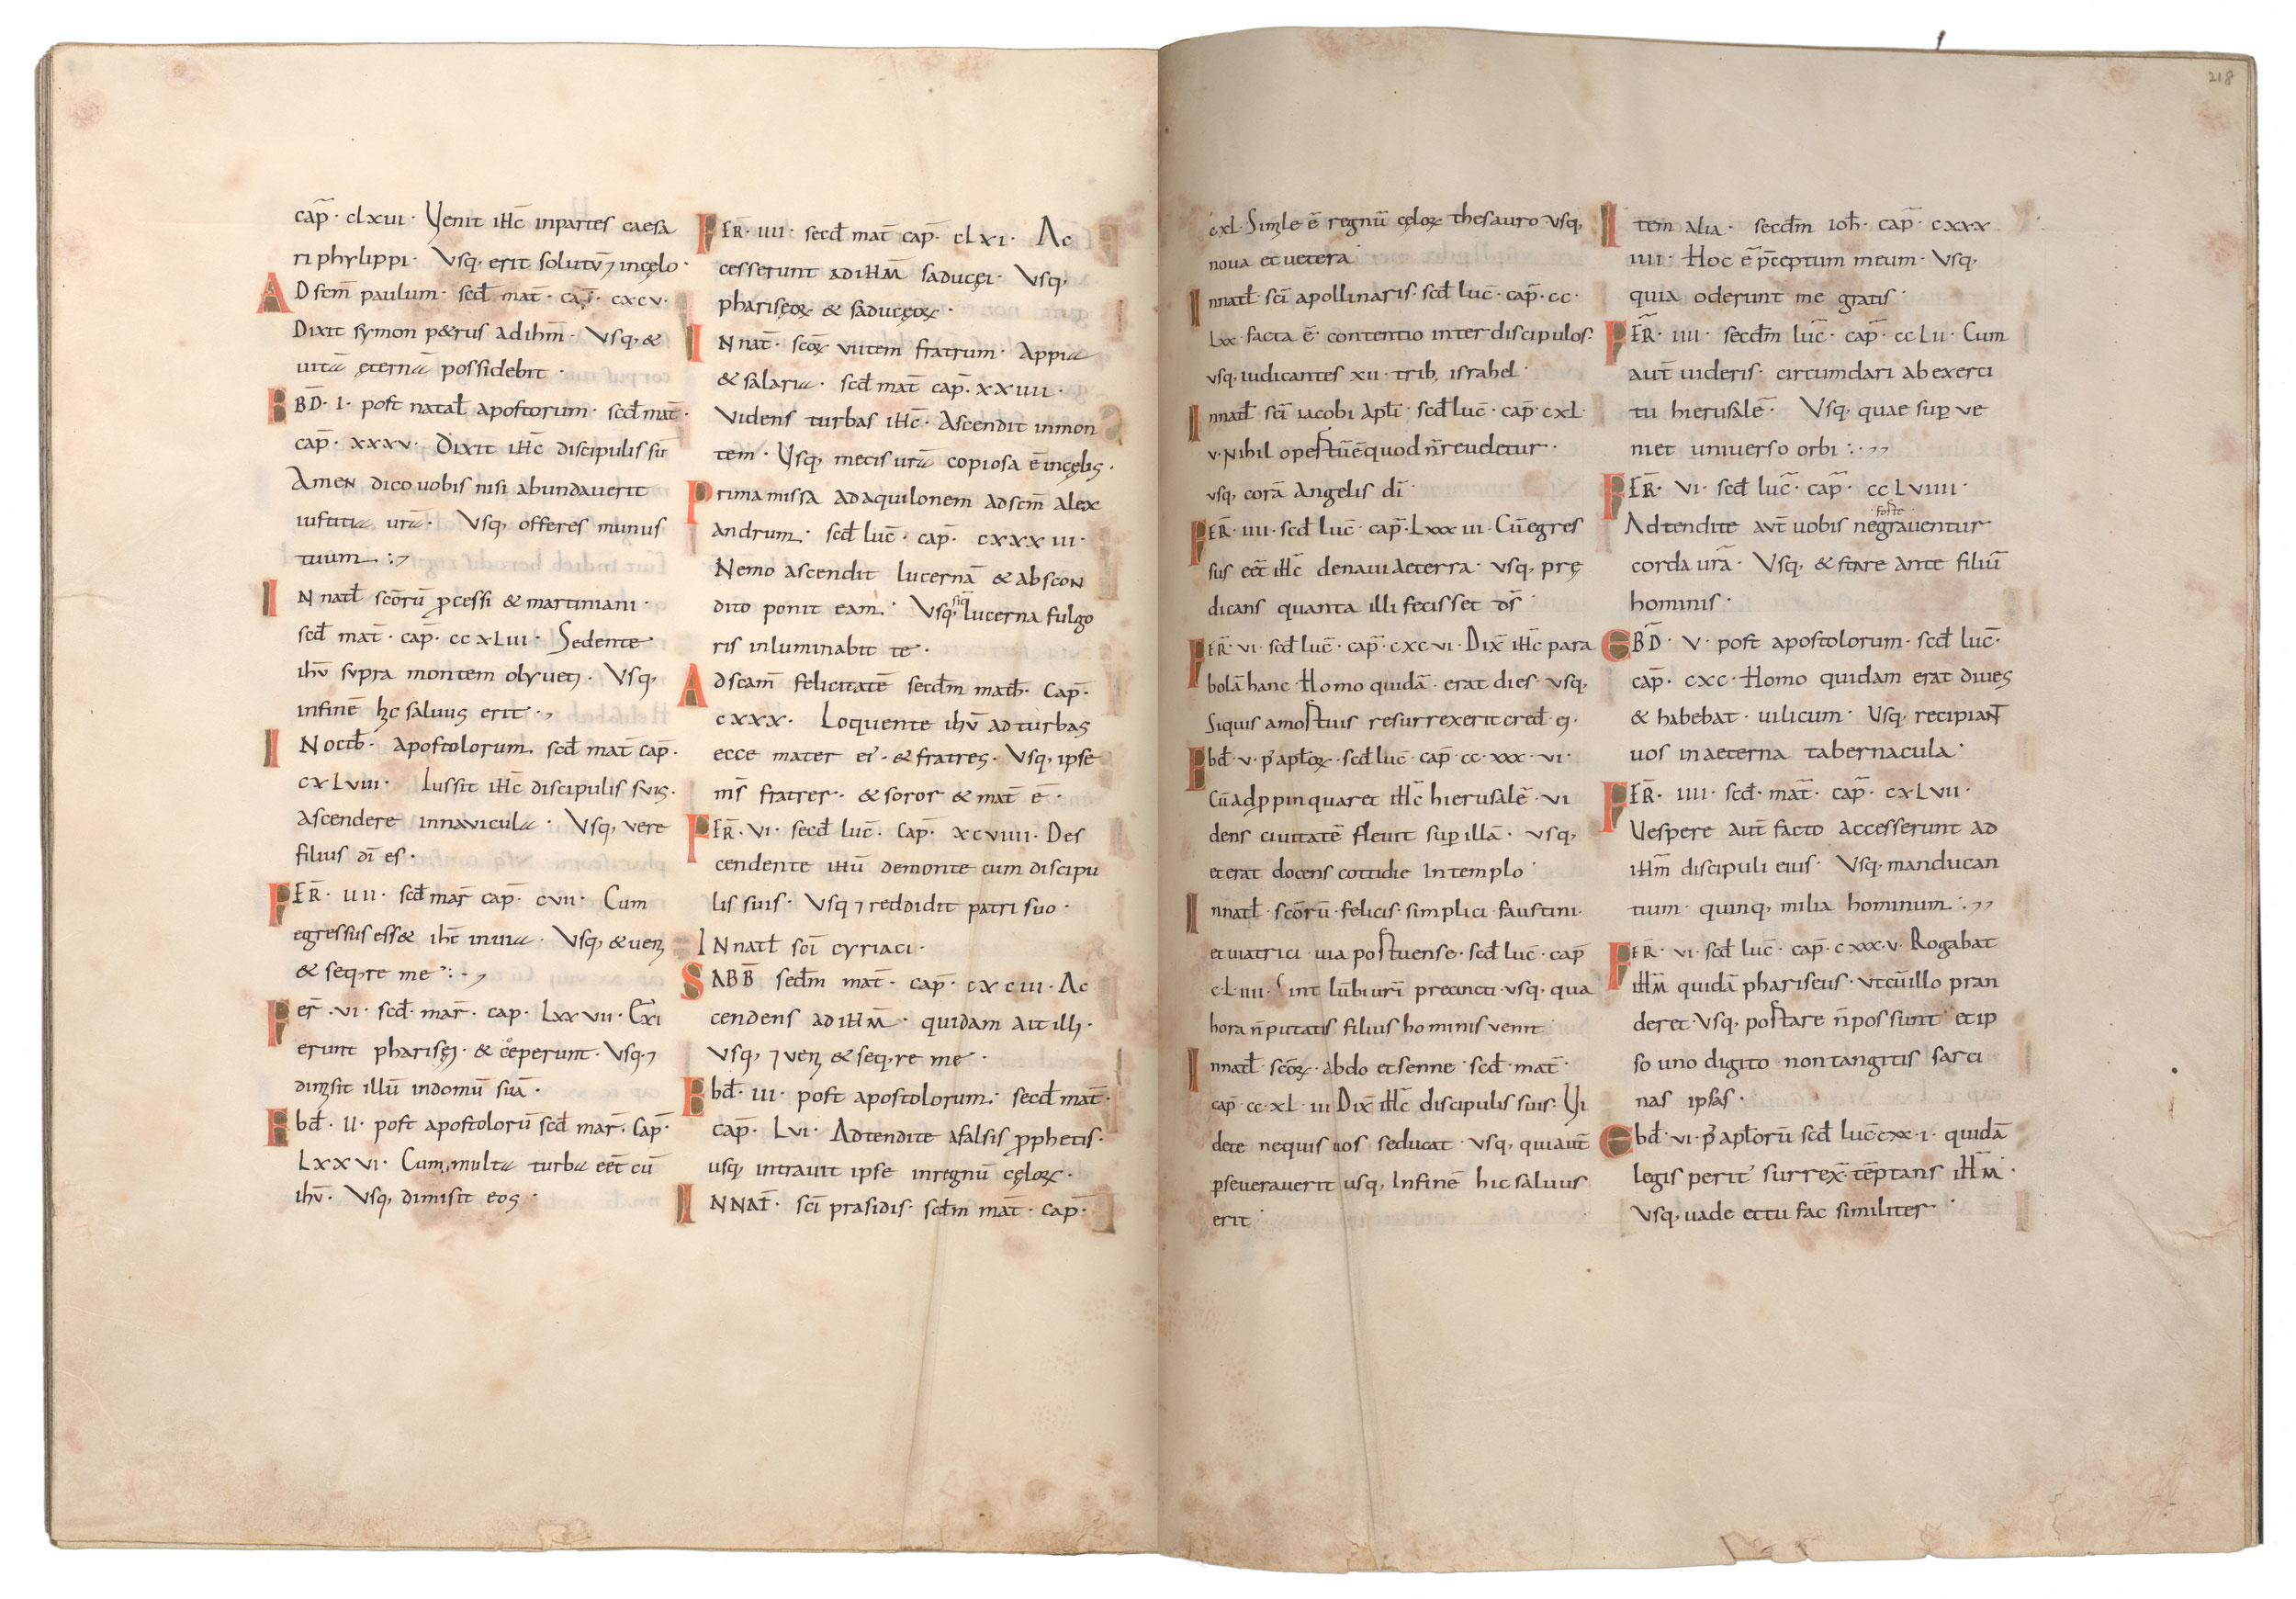 cap̄· clxvi· Venit ihc̄ inpartes caesa
ri phylippi· Vsq, erit solutū ⁊ incęlo·
AD scm̄ paulum· scd̄ mat̄· cap̄· cxcv·
Dixit symon p&rus ad ihm̄· Vsq, &
uitā ęternā possidebit·
EBD̄· I· post natał apostorum· scd̄ mat̄·
cap̄· xxxv· Dixit ihc̄ discipulis sui
Amen dico uobis nisi abundauerit
iustitia urā· Vsq, offeres munus
tuum :,
IN natł scōrū ꝓcessi & martiniani·
scd̄ mat̄· cap̄· ccxLIII· Sedente
ihū supra montem olyueti· Vsq,
infinē hic saluus erit·,
IN octb̄· Apostolorum scd̄ mat̄ cap̄·
cxLviii· Iussit ihc̄ discipulis suis·
ascendere innaviculā· Vsq, vere
filius dī es·
FER̄· IIII· scd̄ mar̄ cap̄· cvii· Cum
egressus ess& ihc̄ inuia· Vsq, & ueni
& seq,re me :-,
Fer̄· vi· scd̄ mar̄· cap· Lxxvii· Exi
erunt pharisęi· & coeperunt· Vsq, ⁊
dimisit illū indomū suā·
Ebd̄· II· post apostolorū scd̄ mar̄· Cap̄·
Lxxvi· Cum multa turba eēt cū
ihū· Vsq, dimisit eos·
FER̄· IIII· secd̄ mat̄ cap̄· cLxi· Ac
cesserunt ad ihm̄ saducęi· Vsq,
pharisęoꝝ & saducęoꝝ·
IN nat̄· scōꝝ viitem fratrum· Appia
& salaria· scd̄ mat̄ cap̄· xxiiii·
Videns turbas ihc̄· Ascendit inmon
tem· Vsq, mercis urā copiosa ē incęlis·
Prima missa adaquilonem adscm̄ alex
andrum· scd̄ luc̄· cap̄· cxxxiii·
Nemo ascendit lucernā & abscon
dito ponit eam· Vsq, sic̄ lucerna fulgo
ris inluminabit te·
Adscam̄ felicitatē secdm̄ math̄· Cap̄·
cxxx· Loquente ihū ad turbas
ecce mater ei'· & fratres· Vsq, ipse
m̄s frater· & soror & mat̄ ē·
FER̄· VI· secd̄ luc̄· Cap̄· xcviiii· Des
cendente ihū demonte cum discipu
lis suis· Vsq ⁊ reddidit patri suo·
IN natł scī cyriaci·
SABB̄ secdm̄ mat̄· cap̄· cxciii· Ac
cendens ad ihm̄· quidam ait illi·
Vsq, ⁊ veni & seq,re me·
Ebd̄· iii· post apostolorum· secd̄ mat̄·
cap̄· Lvi· Adtendite afalsis ꝓphetis·
usq, intrauit ipse inregnū cęloꝝ·
INNAT̄· scī prasidis· scdm̄ mat̄· cap̄·
cxl· Simile ē regnū cęloꝝ thesauro Vsq,
noua et uetera
Innatł· scī apollinaris· scd̄ luc̄· cap̄· cc·
Lxx· facta ē· contentio inter discipulos·
vsq, iudicantes xii· trib, israhel·
Innatł· scī iacobi apłi· scd̄ luc̄· cap̄· cxL·
v· Nihil opertū ē quod n̄ reueletur·
vsq, corā Angelis dī
FER̄· IIII· scd̄ luc̄· cap̄· Lxxxiii· Cū egres
sus eēt ihc̄ denaui aeterra· vsq, prę
dicans quanta illi fecisset ds̄
FER̄· VI· scd̄ luc̄· cap̄· cxcvi· Dix̄ ihc̄ para
bolā hanc Homo quidā· erat dies· vsq,
Siquis amortuis resurrexerit cred̄· ei·
Ebd̄· v· p̄ apłoꝝ· scd̄ luc̄· cap̄ cc· xxx· vi·
Cū adꝓpinquaret ihc̄ hierusalē· vi
dens ciuitatē fleuit sup̱ illā· vsq,
et erat docens cottidie Intemplo
Innatł· scōrū· felicis· simplici faustini·
et uiatrici· uia portuense· scd̄ luc̄· cap̄
c·L·iiii· Sint lūbi urī precincti· vsq, qua
hora n̄ putatis filius hominis venit
Innatł· scōꝝ· abdo et senne· scd̄· mat̄·
cap̄ cc·xL·iii Dix̄ ihc̄ discipulis suis· Vi
dete nequis uos seducat· vsq, qui aut̄
ꝑseuerauerit usq, Infinē hic saluus
erit
Item alia· secdm̄ ioh̄· cap̄· cxxx
iiii· Hoc ē p̄ceptum meum· Vsq,
quia oderunt me gratis·
FER̄· IIII· secdm̄ luc̄· cap̄· ccLii· Cum
aut̄ uideris· circumdari abexerci
tu hierusalē· Vsq, quae sup̱ ve
niet universo orbi :·,,
FER̄· VI· scd̄ luc̄· cap̄· ccLviiii·
Adtendite aut̄ uobis ne forte grauentur
corda urā· Vsq, & stare ante filiū
hominis·
EBD̄· V· post apostolorum· scd̄ luc̄·
cap̄· cxc· Homo quidam erat diues
& habebat· uilicum· Vsq, recipiant
uos in aeterna tabernacula·
FER̄· IIII· scd̄· mat̄· cap̄· cxLvii·
Vespere aut̄ facto accesserunt ad
ihm̄ discipuli eius· Vsq, manducan
tium· quinq, milia hominum :,,
FER̄· VI· scd̄ luc̄· cap̄· cxxx·v· Rogabat
ihm̄ quidā phariseus· vt cū illo pran
deret· Vsq, portare n̄ possunt et ip
so uno digito non tangitis sarci
nas ipsas·
Ebd̄· vi· p̄ apłorū scd̄ luc̄ cxx·i· quidā
legis perit' surrex̄· tēptans ihm̄·
Vsq, uade et tu fac similiter·
218